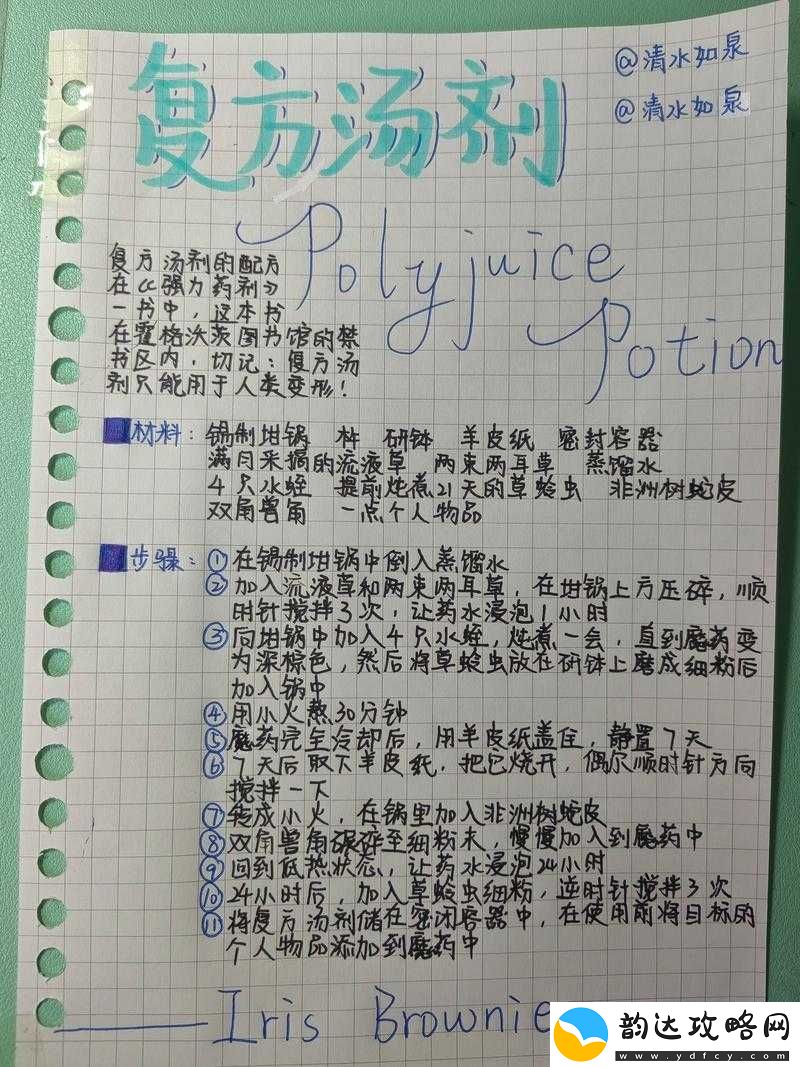 @清水如泉
@清水如泉
复方汤剂
Polyjuice
Potion
复方汤剂的配方
在《强力药剂》
一书中，这本书
在霍格沃茨图书馆的禁
书区内，切记：复方汤
剂只能用于人类变形！
材料：锡制坩锅 杵 研钵 羊皮纸 密封容器
满月采摘的流液草 两束两耳草 蒸馏水
4只水蛭 提前炖煮21天的草蛉虫 非洲树蛇皮
双角兽角 一点个人物品
步骤：①在锡制坩锅中倒入蒸馏水
②加入流液草和两束两耳草，在坩锅上方压碎，顺
时针搅拌3次，让药水浸泡1小时
③向坩锅中加入4只水蛭，炖煮一会，直到魔药变
为深棕色，然后将草蛉虫放在研钵上磨成细粉后
加入锅中
④用小火熬30分钟
⑤魔药完全冷却后，用羊皮纸盖住，静置7天
⑥7天后取下羊皮纸，把它烧开，偶尔顺时针方向
搅拌一下
⑦转成小火，在锅里加入非洲树蛇皮
⑧双角兽角碾碎至细粉末，慢慢加入到魔药中
⑨回到低热状态，让药水浸泡24小时
⑩24小时后，加入草蛉虫细粉，逆时针搅拌3次
⑪将复方汤剂储在密闭容器中，在使用前将目标的
个人物品添加到魔药中
——Iris Brownie
韵达攻略网
www.ydfcy.com